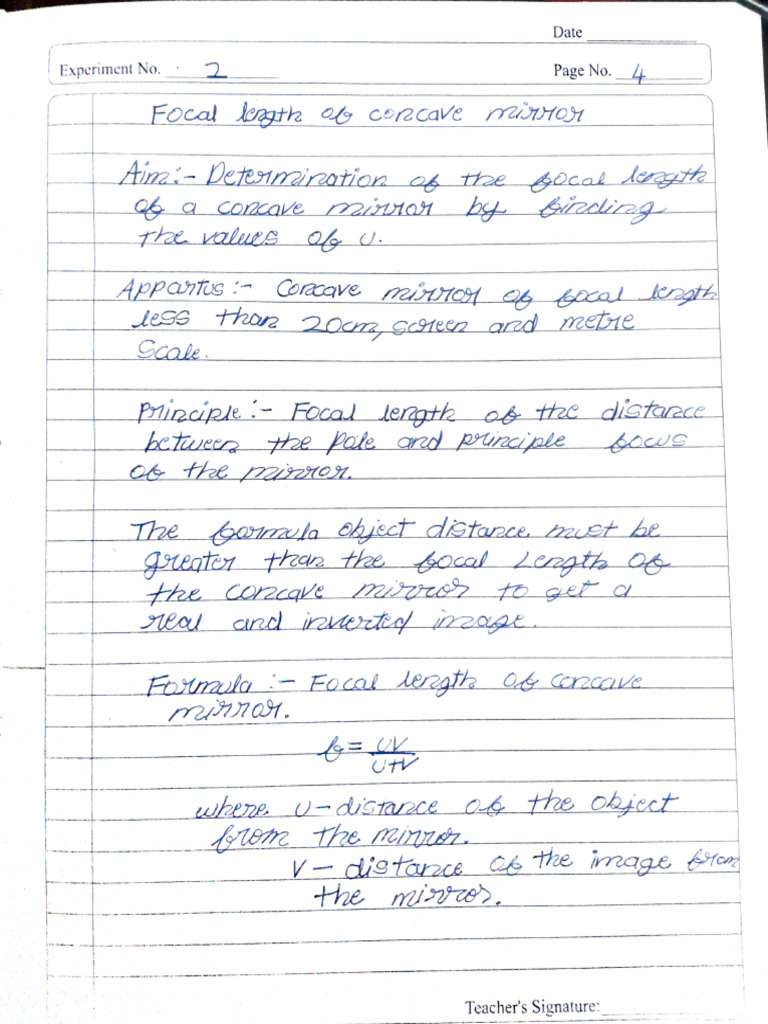 Date
Experiment No. 2
Page No. 4
Focal length of concave mirror
Aim:- Determination of the focal length
of a concave mirror by finding
the values of u.
Appartus:- Concave mirror of focal length
less than 20cm, screen and metre
Scale.
Principle:- Focal length of the distance
between the pole and principle focus
of the mirror.
The formula object distance must be
greater than the focal Length of
the concave mirror to get a
real and inverted image.
Formula:- Focal length of concave
mirror.
f = uv
u+v
where u-distance of the object
from the mirror.
v - distance of the image from
the mirror.
Teacher's Signature: